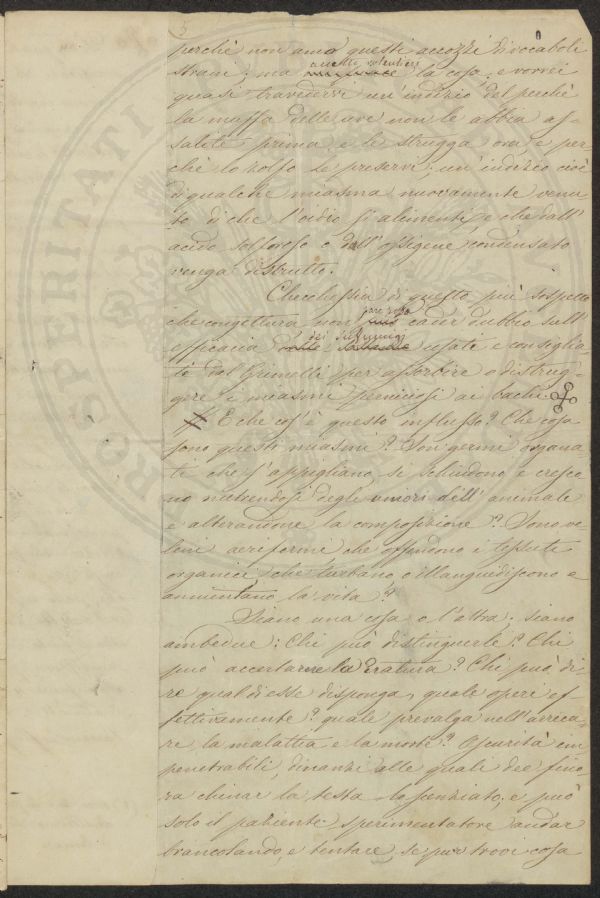 5
perchè non amo questi accozzi di vocaboli
strani; ma accetto volentieri la cosa; e vorrei
quasi travedervi un'indizio del perchè
la muffa delle uve non le abbia as-
salite prima e le strugga ora, e per-
chè lo zolfo le preservi; un'indizio cioè
di qualche miasma nuovamente venu-
to di che l'oidio si alimenti, e che dall'
acido solforoso o dall'ossigene condensato
venga distrutto.
Checchessia di questo più sospetto
che congettura non può cader dubbio sull'
efficacia dei suffumigi usate e consiglia-
te dal Grimelli per assorbire o distrug-
gere i miasmi perniciosi ai bachi.
E che cos'è questo influsso? Che cosa
sono questi miasmi? Son germi organa-
ti che s'appigliano, si schiudono e cresco-
no nutrendosi degli umori dell'animale
e alterandone la composizione? Sono ve-
leni aeriformi che offendono i tessuti
organici, che turbano, o illanguidiscono e
annientano la vita?
Siano una cosa o l'altra; siano
ambedue: Chi può distinguerle? Chi
può accertarne la natura? Chi può di-
re qual di esse disponga, quale operi ef-
fettivamente? quale prevalga nell'arreca-
re la malattia e la morte? Oscurità im-
penetrabili, dinanzi alle quali dee fino-
ra chinar la testa lo scenziato; e può
solo il paziente sperimentatore andar
brancolando, e tentare, se pur trovi cosa
PROSPERITATI